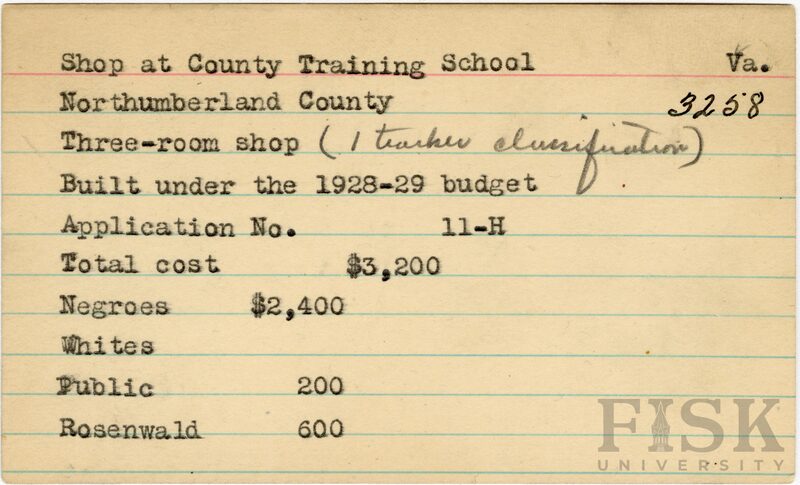 Shop at County Training School Va.
Northumberland County 3258
Three-room shop (1 teacher classification)
Built under the 1928-29 budget
Application No. 11-H
Total cost $3,200
Negroes $2,400
Whites
Public 200
Rosenwald 600
FISK
UNIVERSITY